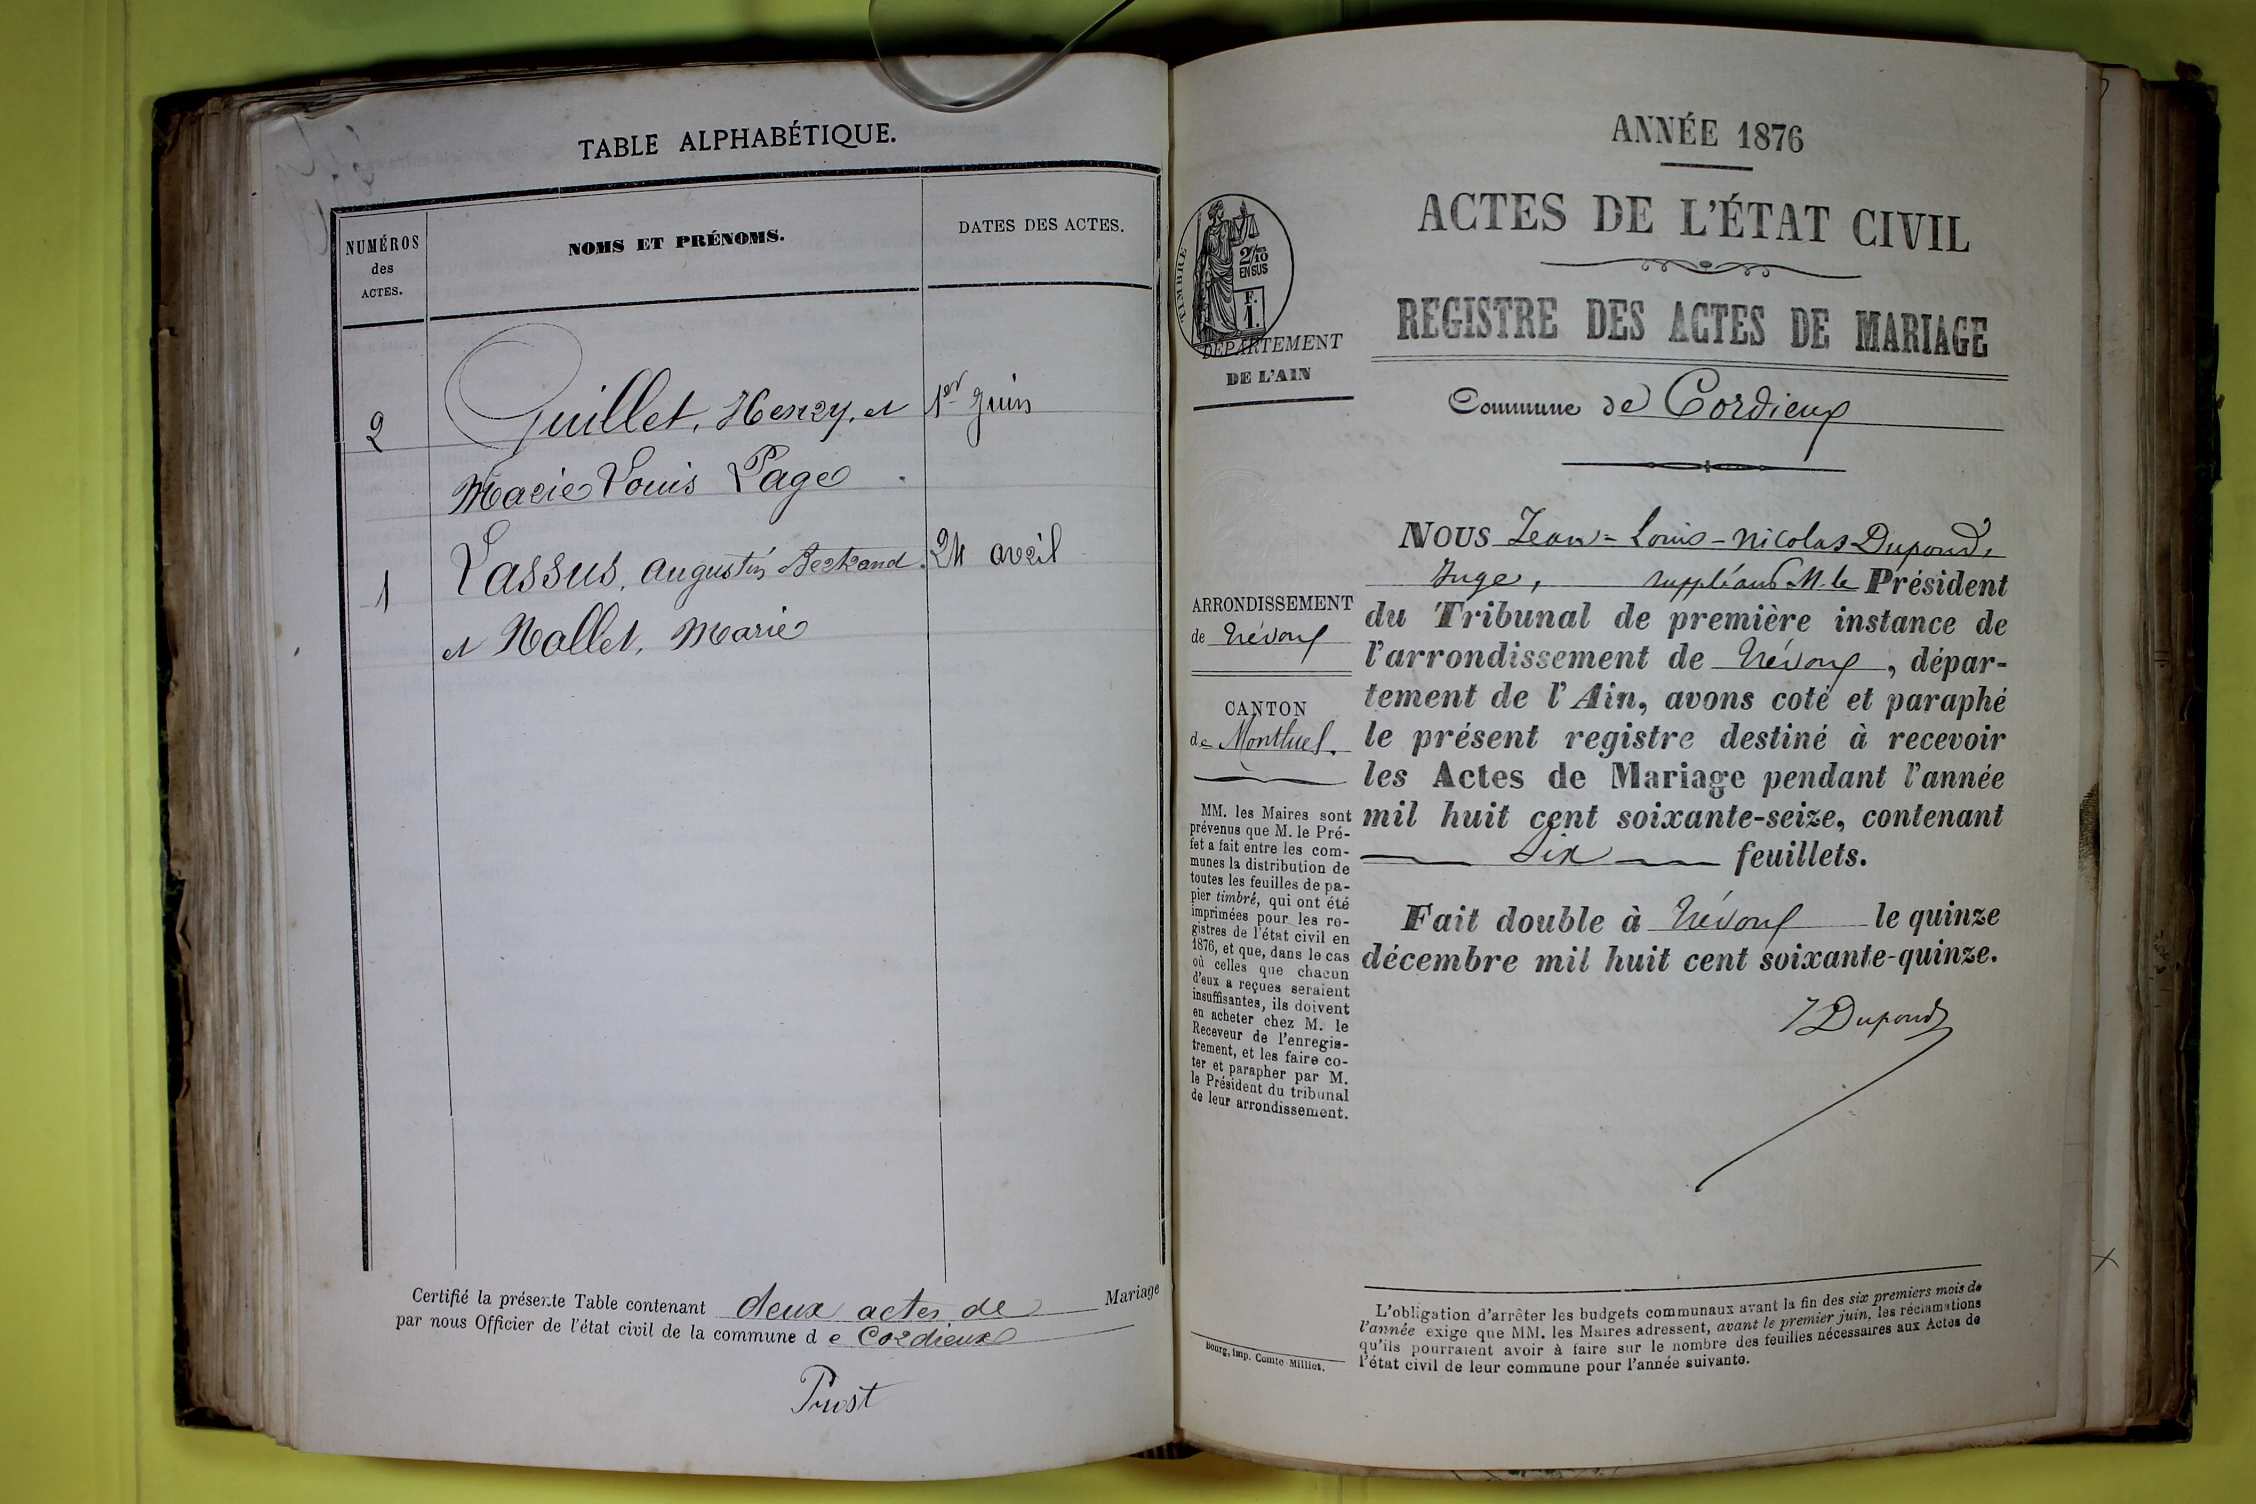 TABLE ALPHABÉTIQUE.
NUMÉROS
des
ACTES.
NOMS ET PRÉNOMS.
DATES DES ACTES.
2 Guillet, Henry, et 1er Juin
Marie Louis Page
1 Lassus, Augustin Bertrand 24 avril
et Nallet, Marie
Certifié la présente Table contenant deux actes de Mariage
par nous Officier de l'état civil de la commune de Cordieux
Prost
ANNÉE 1876
ACTES DE L'ÉTAT CIVIL
REGISTRE DES ACTES DE MARIAGE
TIMBRE
2/10
EN SUS
F.
1.
DÉPARTEMENT
DE L'AIN
Commune de Cordieux
ARRONDISSEMENT
de Trévoux
CANTON
de Montluel.
MM. les Maires sont
prévenus que M. le Pré-
fet a fait entre les com-
munes la distribution de
toutes les feuilles de pa-
pier timbré, qui ont été
imprimées pour les re-
gistres de l'état civil en
1876, et que, dans le cas
où celles que chacun
d'eux a reçues seraient
insuffisantes, ils doivent
en acheter chez M. le
Receveur de l'enregis-
trement, et les faire co-
ter et parapher par M.
le Président du tribunal
de leur arrondissement.
NOUS Jean-Louis-Nicolas Dupond,
Juge, suppléant M. le Président
du Tribunal de première instance de
l'arrondissement de Trévoux, dépar-
tement de l'Ain, avons coté et paraphé
le présent registre destiné à recevoir
les Actes de Mariage pendant l'année
mil huit cent soixante-seize, contenant
Six feuillets.
Fait double à Trévoux le quinze
décembre mil huit cent soixante-quinze.
J Dupond
Bourg, imp. Comte-Milliet.
L'obligation d'arrêter les budgets communaux avant la fin des six premiers mois de
l'année exige que MM. les Maires adressent, avant le premier juin, les réclamations
qu'ils pourraient avoir à faire sur le nombre des feuilles nécessaires aux Actes de
l'état civil de leur commune pour l'année suivante.